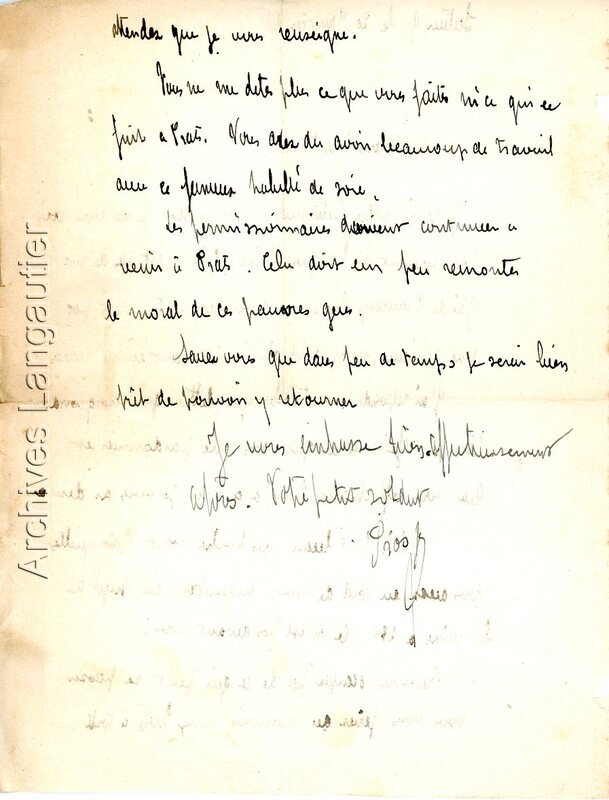 attendez que je vous renseigne.
Vous ne me dites plus ce que vous faites ni ce qui se
fait à Prats. Vous avez du avoir beaucoup de travail
avec ce fameux de soie.
Les permissionnaires doivent continuer a
venir à Prats. Celu doit un peu remonter
le moral de ces pauvres gens.
Savez vous que dans peu de temps je serai bien
prêt de pouvoir y retourner
Je vous embrasse très affectueusement
Votre petit soldat
Archives Langautier